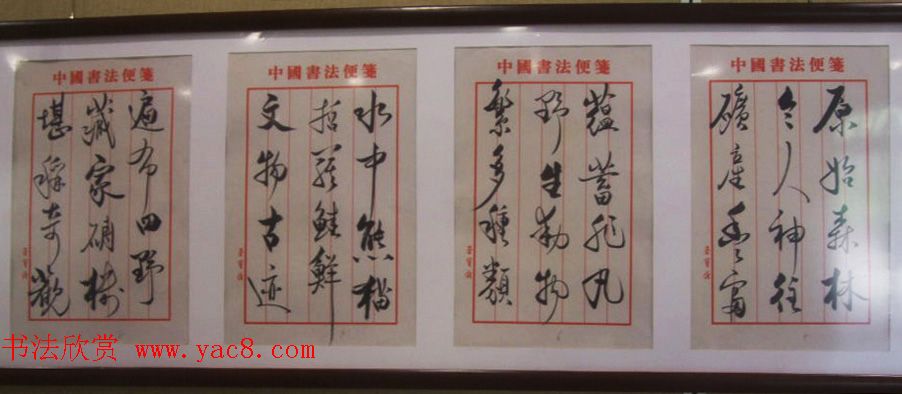 中國書法便箋
原始森林
令人神往
礦產豐富
中國書法便箋
蘊蓄非凡
野生動物
繁多種類
中國書法便箋
水中熊猫
哲羅鮭鮮
文物古迹
中國書法便箋
遍布田野
藏家碉樓
堪稱奇觀
书法欣赏 www.yac8.com